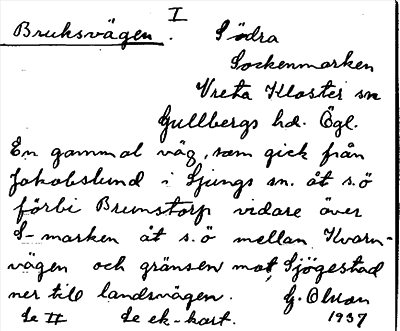 I
Bruksvägen. Södra
Sockenmarken
Vreta Kloster sn
Gullbergs hd. Ögl.
En gammal väg, som gick från
Jakobslund i Ljungs sn. åt s.ö
förbi Brunstorp vidare över
S-marken åt s.ö mellan Kvarn-
vägen och gränsen mot Sjögestad
ner till landsvägen. G. Olson
Se II Se ek-kart. 1937